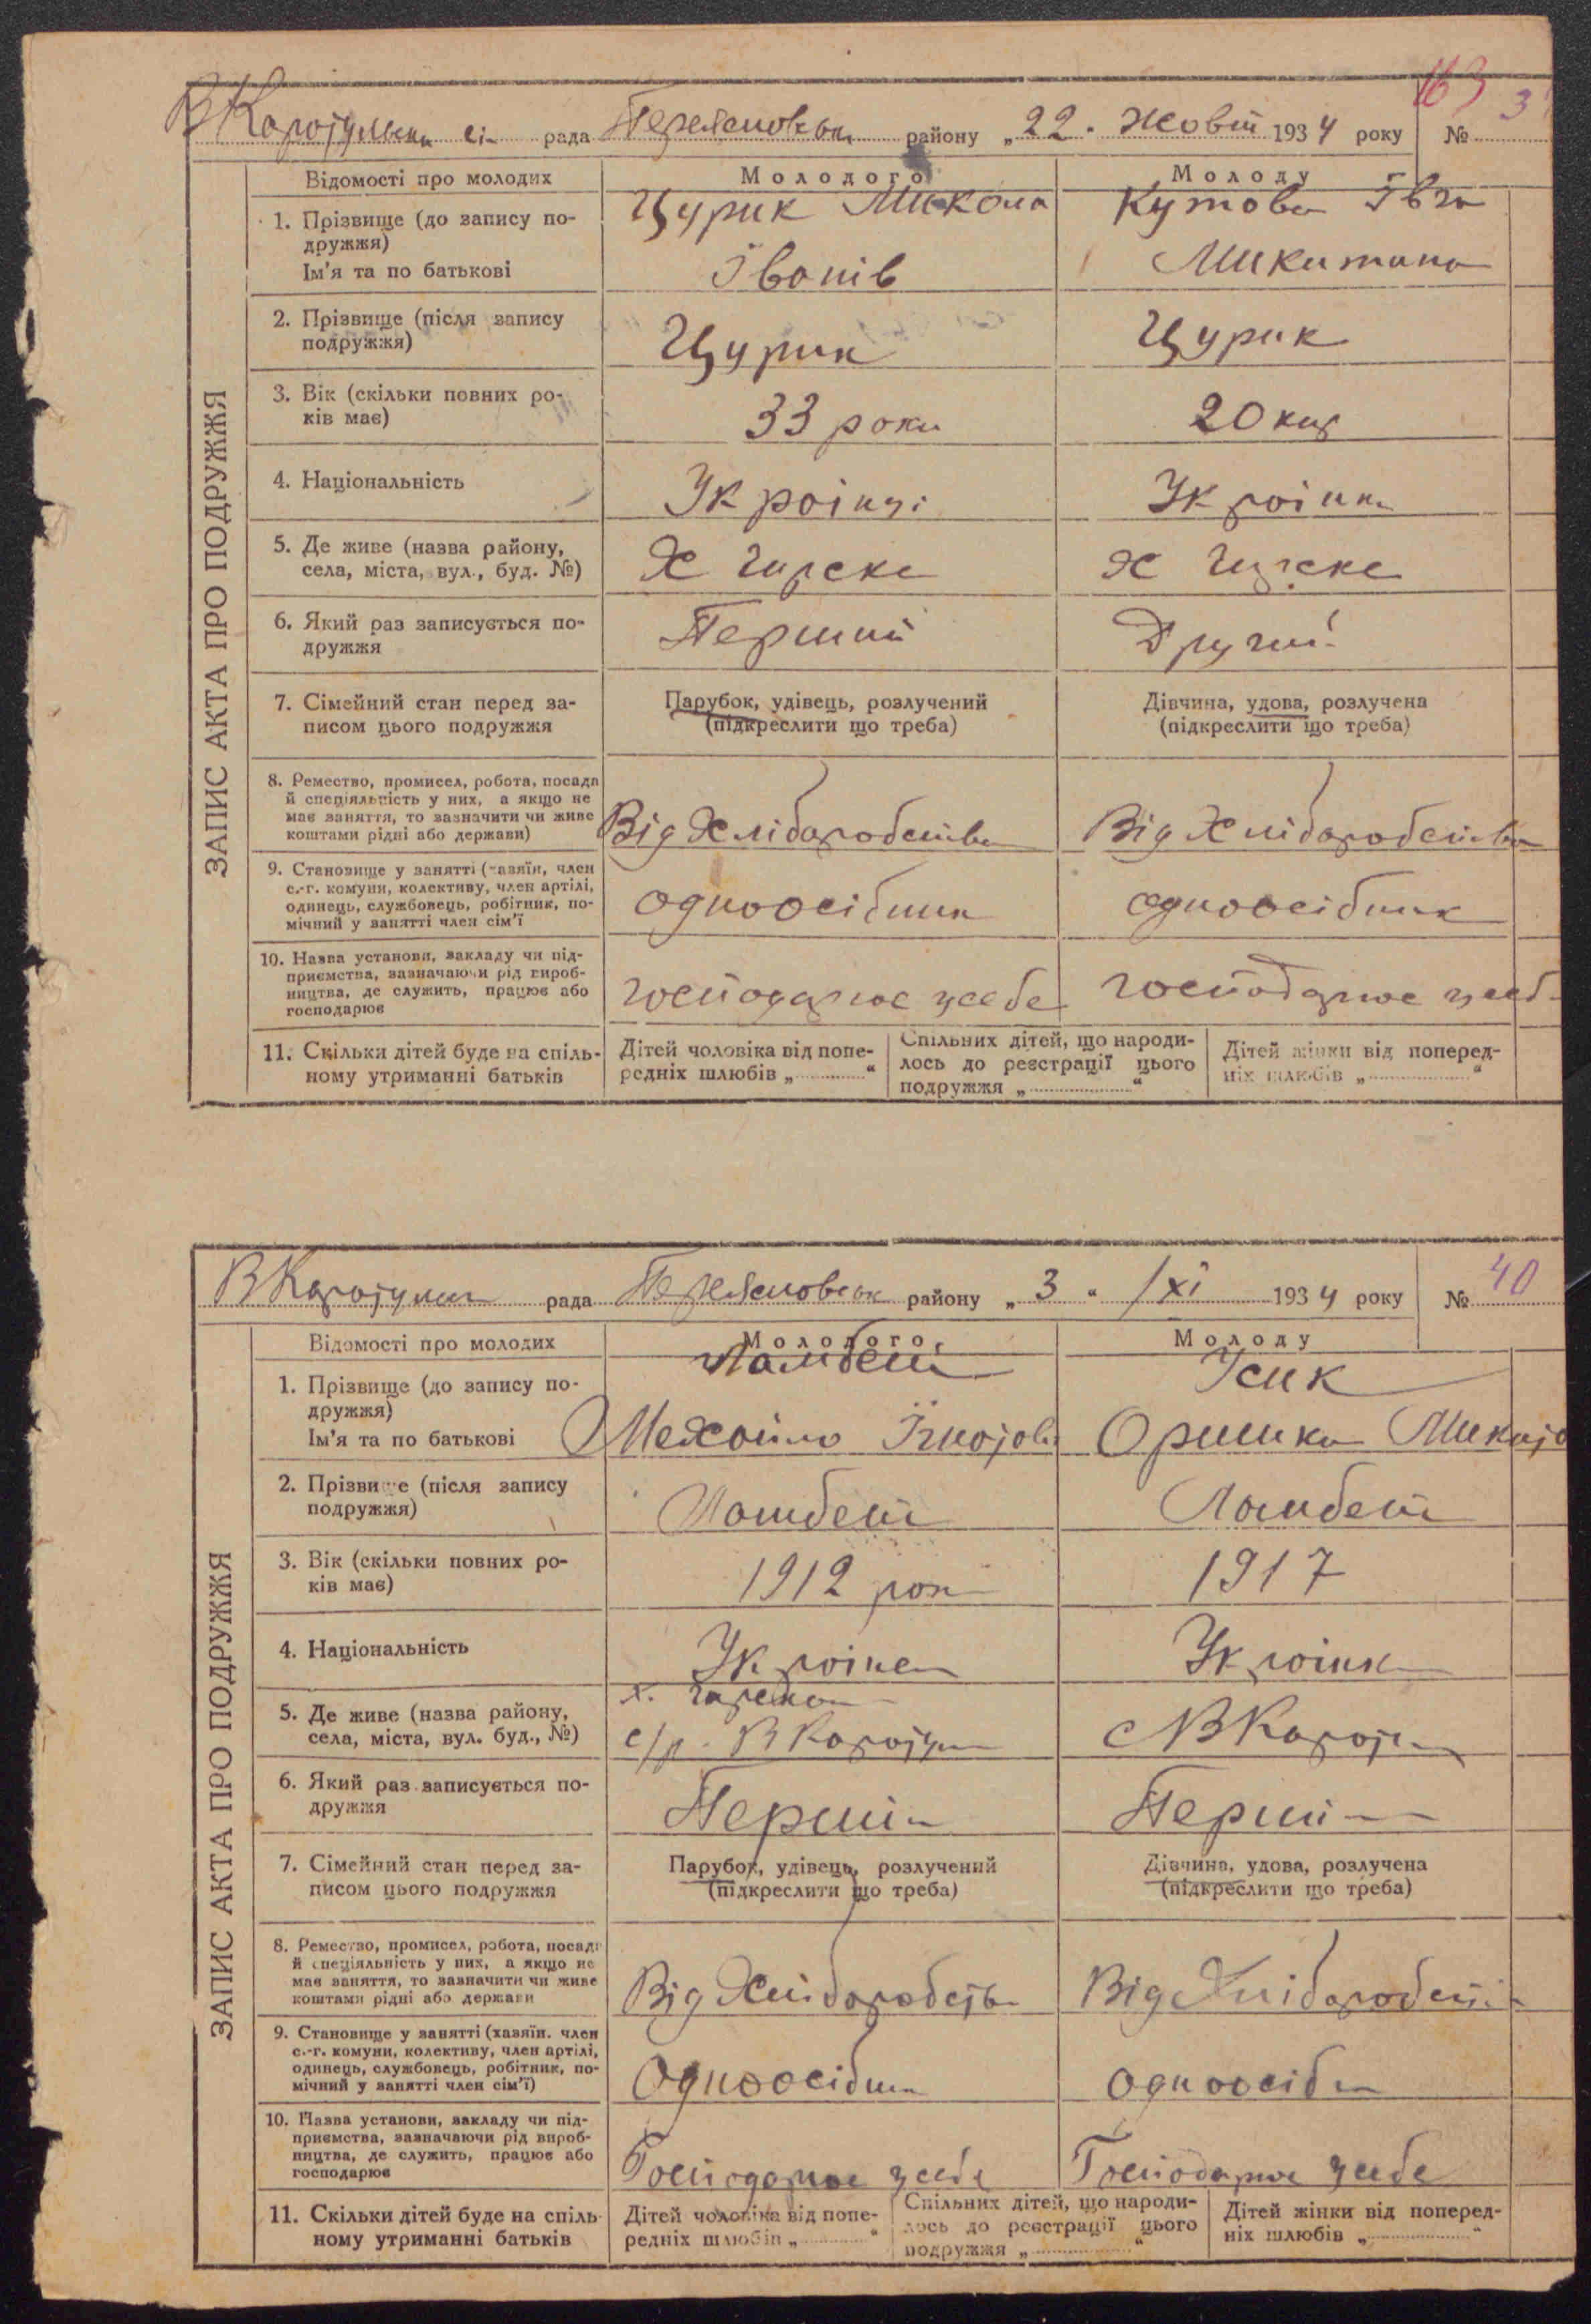 163
В Каратульська сі- рада Переяславськ району „22“ Жовт 1934 року № 3
Відомості про молодих
Молодого
Молоду
1. Прізвище (до запису по-
дружжя)
Ім'я та по батькові
Цурик Микола
Іванів
Кутова Івга
Микитина
2. Прізвище (після запису
подружжя)
Цурик
Цурик
3. Вік (скільки повних ро-
ків має)
33 роки
20
4. Національність
Україн
Українк
5. Де живе (назва району,
села, міста, вул., буд. №)
х Гирске
х Гирске
6. Який раз записується по-
дружжя
Перший
Другий
7. Сімейний стан перед за-
писом цього подружжя
Парубок, удівець, розлучений
(підкреслити що треба)
Дівчина, удова, розлучена
(підкреслити що треба)
8. Ремество, промисел, робота, посада
й спеціяльність у них, а якщо не
має заняття, то зазначити чи живе
коштами рідні або держави)
Від Хліборобства
Від Хліборобства
9. Становище у занятті (хазяїн, член
с.-г. комуни, колективу, член артілі,
одинець, службовець, робітник, по-
мічний у занятті член сім'ї
одноосібник
одноосібник
10. Назва установи, закладу чи під-
приємства, зазначаючи рід вироб-
ництва, де служить, працює або
господарює
господарює у себе
господарює у себ
11. Скільки дітей буде на спіль-
ному утриманні батьків
Дітей чоловіка від попе-
редніх шлюбів „ “
Спільних дітей, що народи-
лось до реєстрації цього
подружжя „ “
Дітей жінки від поперед-
ніх шлюбів „ “
ЗАПИС АКТА ПРО ПОДРУЖЖЯ
В Каратульс рада Переясловськ району „3“ /XI 1934 року № 40
Відомості про молодих
Молодого
Молоду
1. Прізвище (до запису по-
дружжя)
Ім'я та по батькові
Ламбет
Михайло Ігнатов
Усик
Оришка Микит
2. Прізвище (після запису
подружжя)
Ламбет
Ламбет
3. Вік (скільки повних ро-
ків має)
1912 рок
1917
4. Національність
Українец
Українк
5. Де живе (назва району,
села, міста, вул. буд., №)
х. Гирско
с/р. В Каратул
с В Карат
6. Який раз записується по-
дружжя
Перший
Перший
7. Сімейний стан перед за-
писом цього подружжя
Парубок, удівець, розлучений
(підкреслити що треба)
Дівчина, удова, розлучена
(підкреслити що треба)
8. Ремество, промисел, робота, посада
й спеціяльність у них, а якщо не
має заняття, то зазначити чи живе
коштами рідні або держави
Від Хліборобств
Від Хліборобств
9. Становище у занятті (хазяїн. член
с.-г. комуни, колективу, член артілі,
одинець, службовець, робітник, по-
мічний у занятті член сім'ї)
Одноосібник
одноосібн
10. Назва установи, закладу чи під-
приємства, зазначаючи рід вироб-
ництва, де служить, працює або
господарює
Господарює у себе
Господарює у себе
11. Скільки дітей буде на спіль-
ному утриманні батьків
Дітей чоловіка від попе-
редніх шлюбів „ “
Спільних дітей, що народи-
лось до реєстрації цього
подружжя „ “
Дітей жінки від поперед-
ніх шлюбів „ “
ЗАПИС АКТА ПРО ПОДРУЖЖЯ